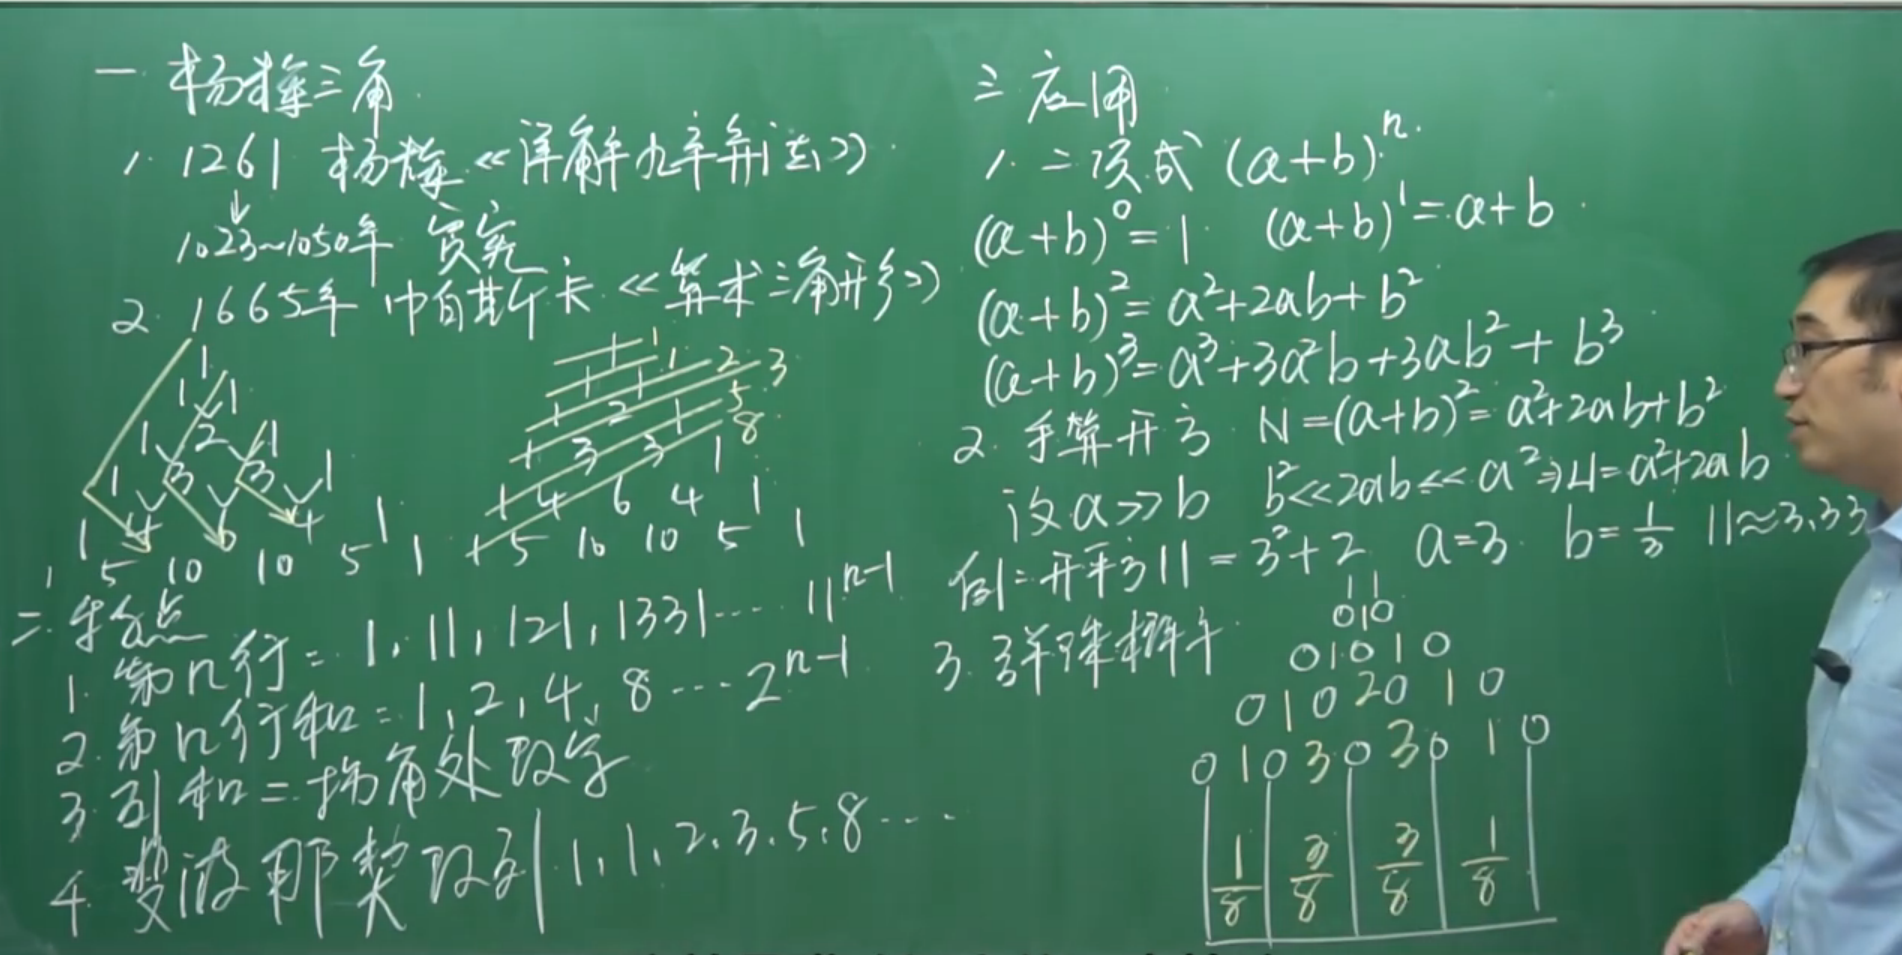 一. 杨辉三角
1. 1261 杨辉《详解九章算法》
1023~1050年 贾宪
2. 1665年 帕斯卡《算术三角形》
1
1 1
1 2 1
1 3 3 1
1 4 6 4 1
1 5 10 10 5 1
1 1
1 1 1 2 3
1 2 1 5
1 3 3 1 8
1 4 6 4 1
1 5 10 10 5 1
二. 特点
1. 第n行= 1, 11, 121, 1331… 11^{n-1}
2. 第n行和= 1, 2, 4, 8 … 2^{n-1}
3. 列和=拐角处数字
4. 斐波那契数列 1, 1, 2, 3, 5, 8 …
三 应用
1. 二项式 (a+b)^n.
(a+b)^0=1 (a+b)^1=a+b
(a+b)^2=a^2+2ab+b^2
(a+b)^3=a^3+3a^2b+3ab^2+b^3
2. 手算开方 N=(a+b)^2=a^2+2ab+b^2
设a>>b b^2<<2ab<<a^2⇒N=a^2+2ab
例: 开平方11=3^2+2 a=3 b=1/3 11≈3.33
3. 弹珠概率
1 1
0 1 0
0 1 0 1 0
0 1 0 2 0 1 0
0 1 0 3 0 3 0 1 0
1/8 3/8 3/8 1/8